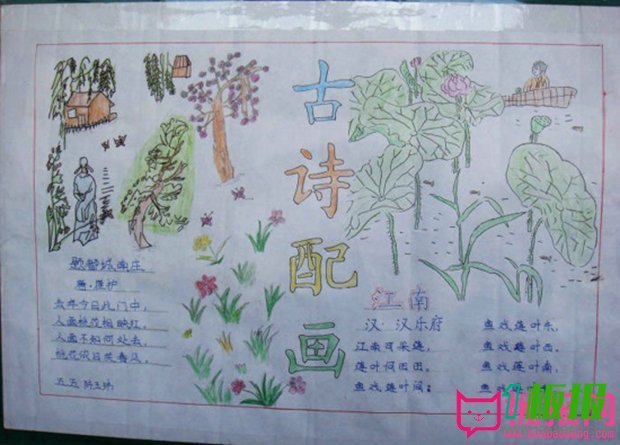 古诗配画
题都城南庄
唐·崔护
去年今日此门中,
人面桃花相映红,
人面不知何处去,
桃花依旧笑春风。
五五
江南
汉·汉乐府
江南可采莲,
莲叶何田田。
鱼戏莲叶间;
鱼戏莲叶东,
鱼戏莲叶西,
鱼戏莲叶南,
鱼戏莲叶
板报网